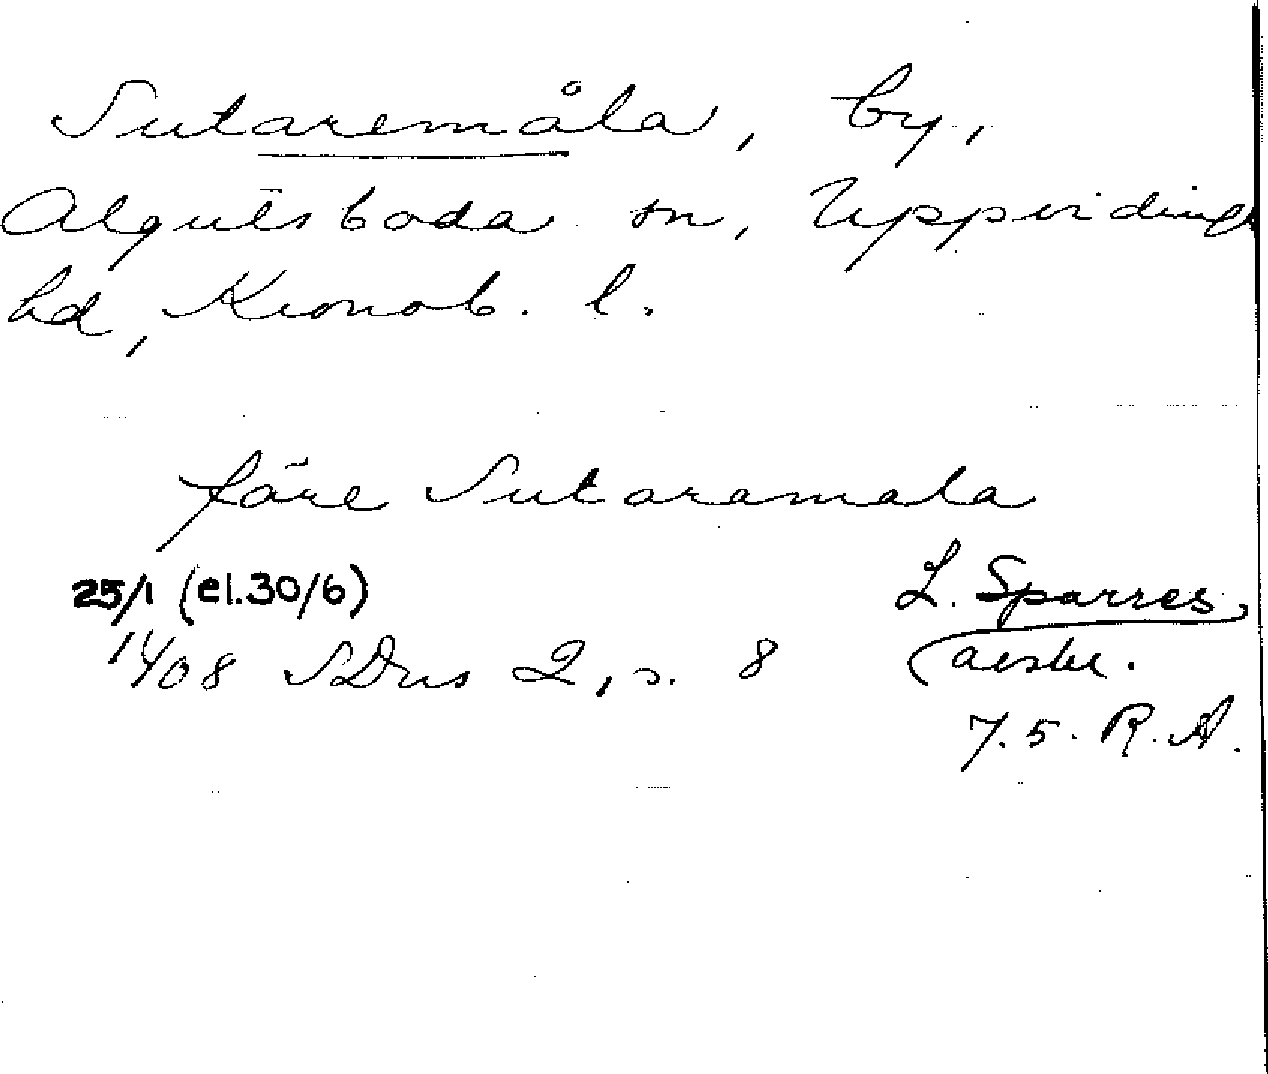 Sutaremåla, by,
Algutsboda sn, Uppvidinge
hd, Kronob. l.
färe Sutaramala
25/1 (el. 30/6) L. Sparres
1408 SDns 2, s. 8
7.5. R.A.